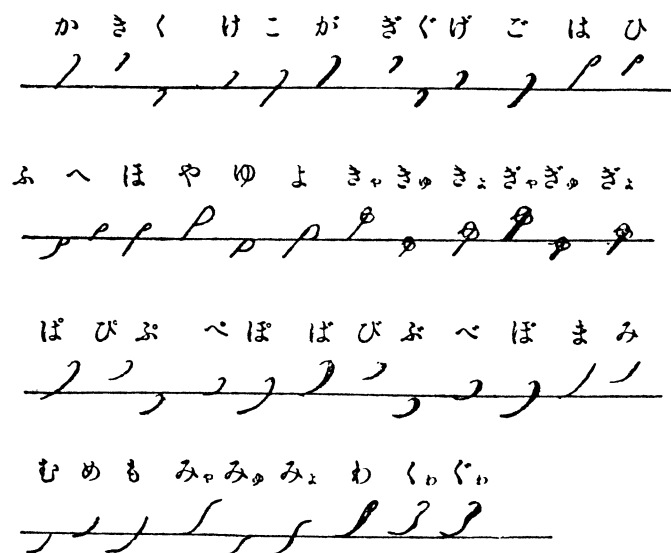 か き く け こ が ぎ ぐ げ ご は ひ
ふ へ ほ や ゆ よ きゃ きゅ きょ ぎゃ ぎゅ ぎょ
ぱ ぴ ぷ ぺ ぽ ば び ぶ べ ぼ ま み
む め も みゃ みゅ みょ わ くゎ ぐゎ